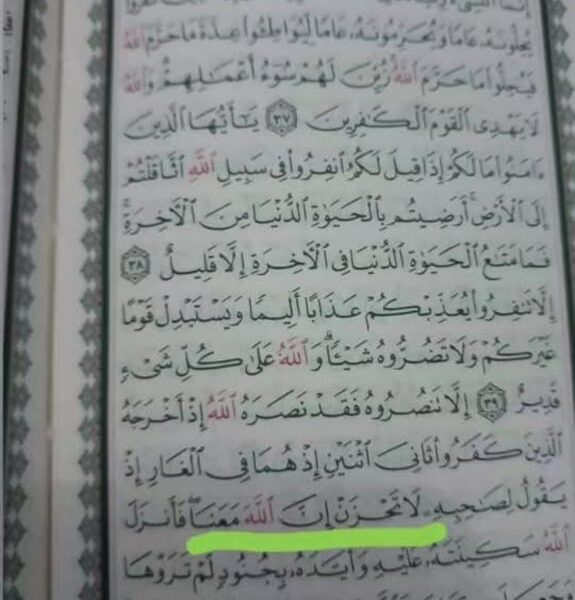 يُحِلُّونَهُۥ عَامًا وَيُحَرِّمُونَهُۥ عَامًا لِّيُوَاطِـُٔوا۟ عِدَّةَ مَا حَرَّمَ ٱللَّهُ
فَيُحِلُّوا۟ مَا حَرَّمَ ٱللَّهُ زُيِّنَ لَهُمْ سُوٓءُ أَعْمَـٰلِهِمْ وَٱللَّهُ
لَا يَهْدِى ٱلْقَوْمَ ٱلْكَـٰفِرِينَ ٣٧ يَـٰٓأَيُّهَا ٱلَّذِينَ
ءَامَنُوا۟ مَا لَكُمْ إِذَا قِيلَ لَكُمُ ٱنفِرُوا۟ فِى سَبِيلِ ٱللَّهِ ٱثَّاقَلْتُمْ
إِلَى ٱلْأَرْضِ أَرَضِيتُم بِٱلْحَيَوٰةِ ٱلدُّنْيَا مِنَ ٱلْـَٔاخِرَةِ
فَمَا مَتَـٰعُ ٱلْحَيَوٰةِ ٱلدُّنْيَا فِى ٱلْـَٔاخِرَةِ إِلَّا قَلِيلٌ ٣٨
إِلَّا تَنفِرُوا۟ يُعَذِّبْكُمْ عَذَابًا أَلِيمًا وَيَسْتَبْدِلْ قَوْمًا
غَيْرَكُمْ وَلَا تَضُرُّوهُ شَيْـًٔا وَٱللَّهُ عَلَىٰ كُلِّ شَىْءٍ
قَدِيرٌ ٣٩ إِلَّا تَنصُرُوهُ فَقَدْ نَصَرَهُ ٱللَّهُ إِذْ أَخْرَجَهُ
ٱلَّذِينَ كَفَرُوا۟ ثَانِىَ ٱثْنَيْنِ إِذْ هُمَا فِى ٱلْغَارِ إِذْ
يَقُولُ لِصَـٰحِبِهِۦ لَا تَحْزَنْ إِنَّ ٱللَّهَ مَعَنَا فَأَنزَلَ
ٱللَّهُ سَكِينَتَهُۥ عَلَيْهِ وَأَيَّدَهُۥ بِجُنُودٍ لَّمْ تَرَوْهَا